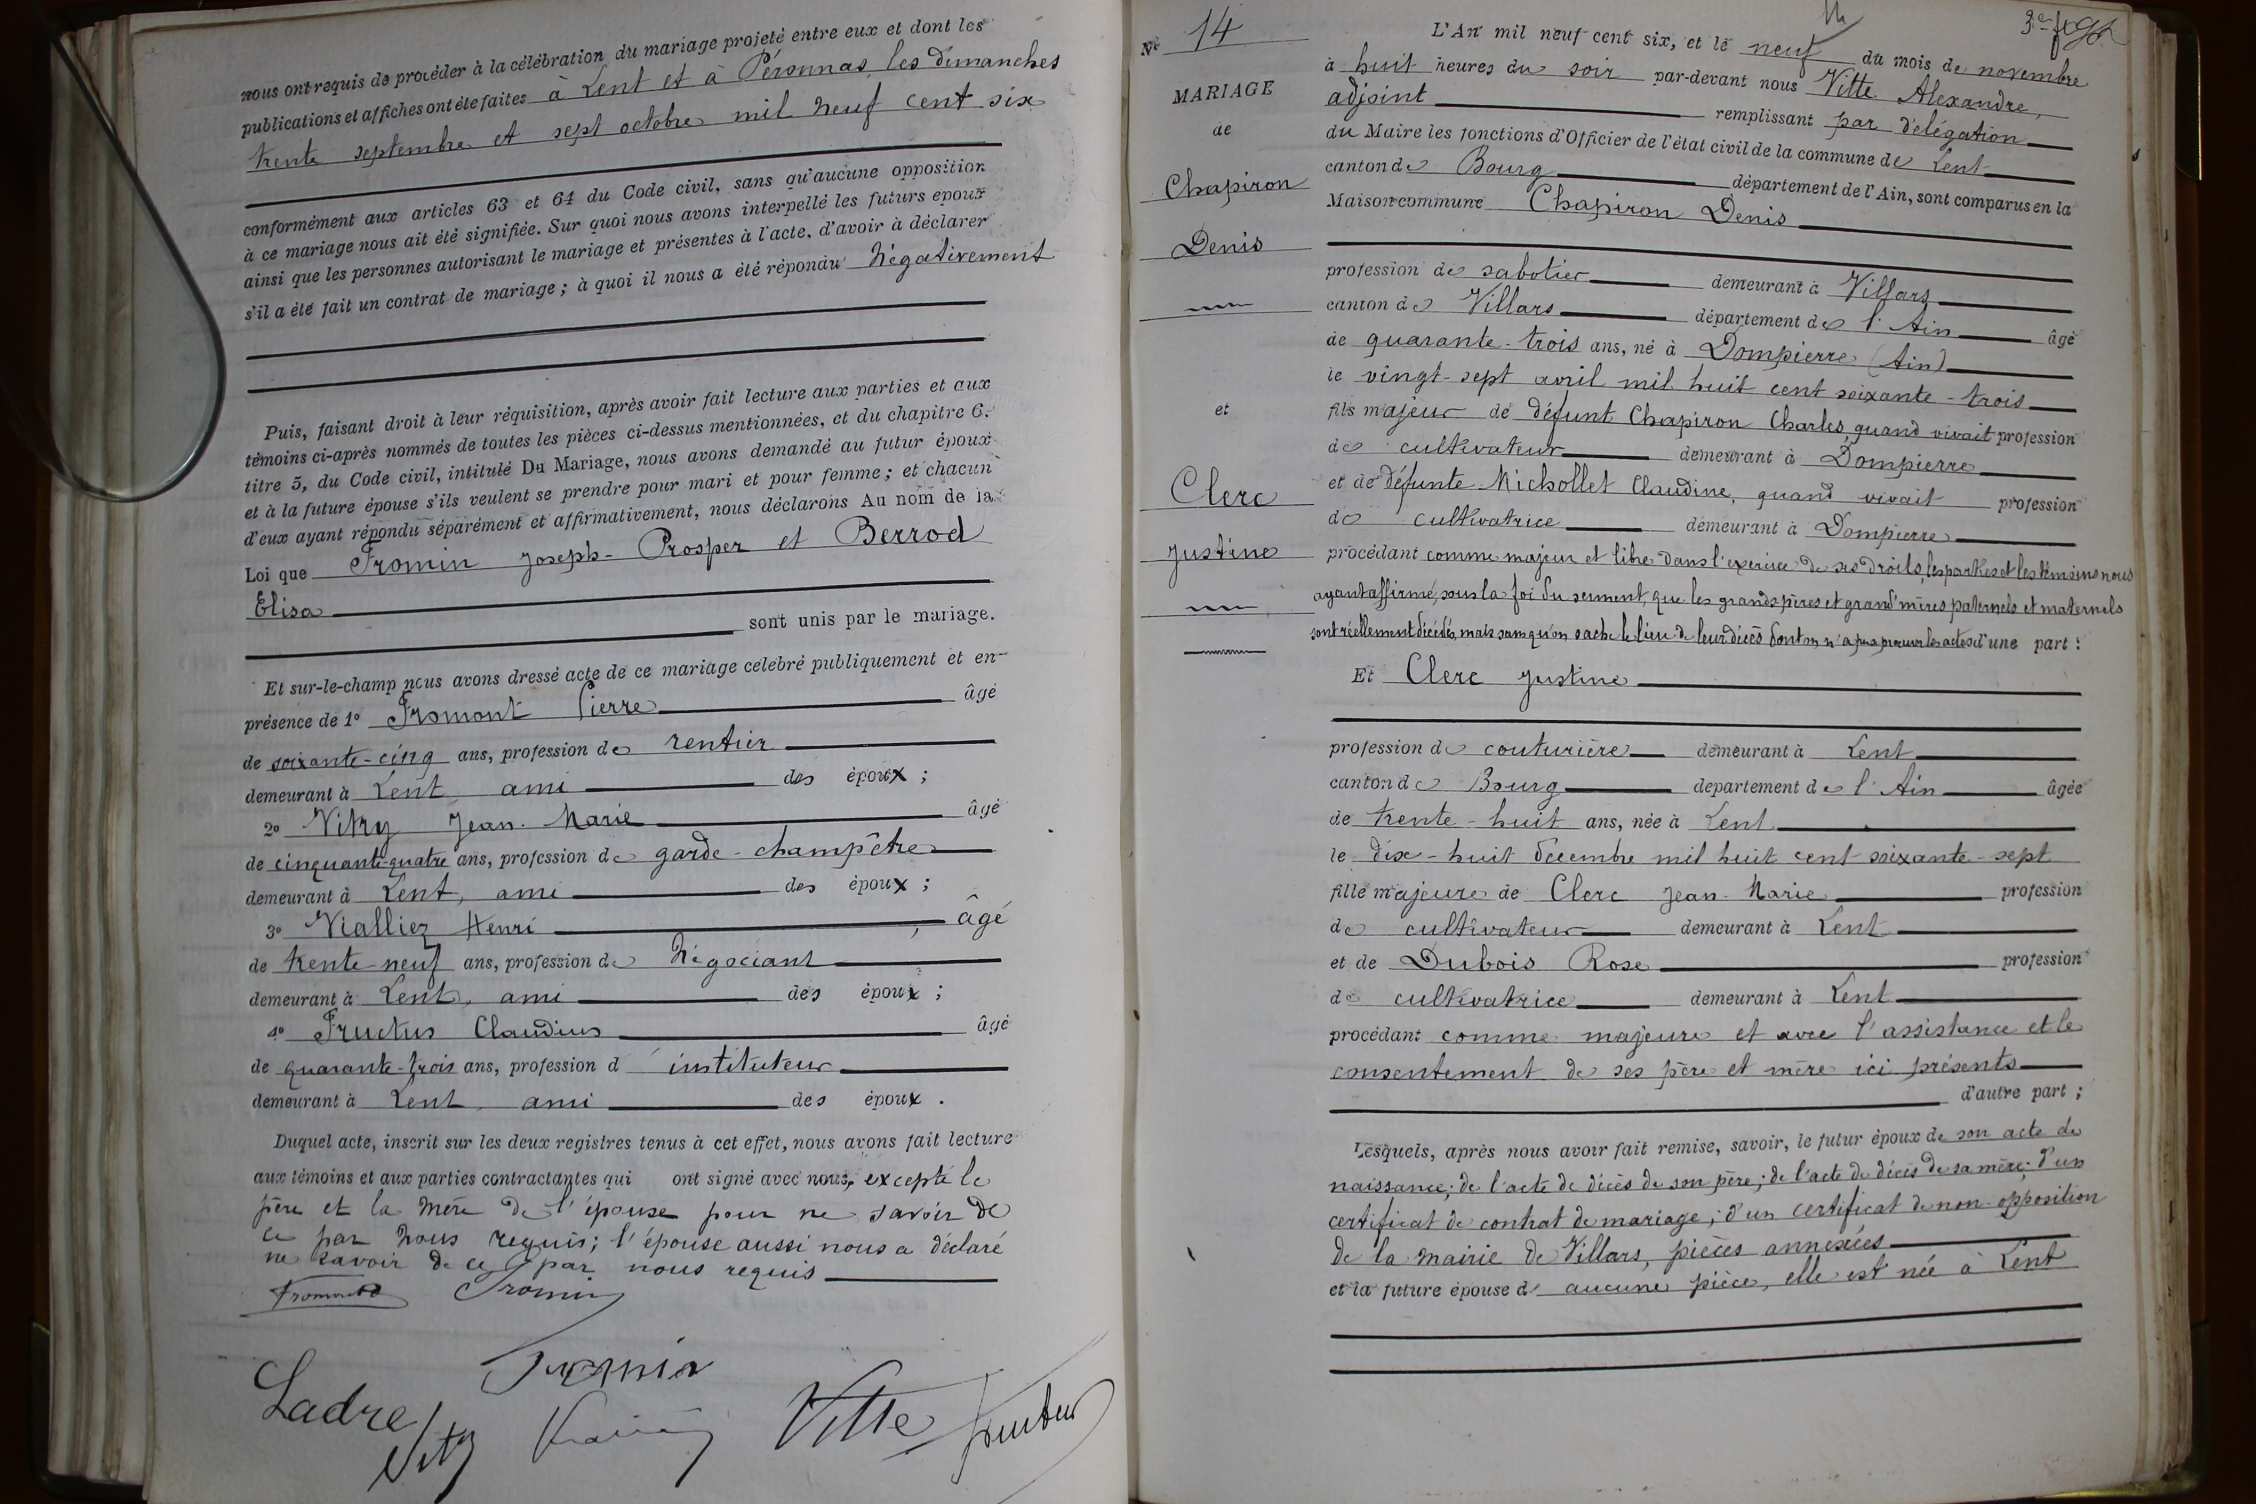 nous ont requis de procéder à la célébration du mariage projeté entre eux et dont les
publications et affiches ont été faites à Lent et à Péronnas, les dimanches
trente septembre et sept octobre mil neuf cent six
conformément aux articles 63 et 64 du Code civil, sans qu'aucune opposition
à ce mariage nous ait été signifiée. Sur quoi nous avons interpellé les futurs époux
ainsi que les personnes autorisant le mariage et présentes à l'acte, d'avoir à déclarer
s'il a été fait un contrat de mariage; à quoi il nous a été répondu négativement
Puis, faisant droit à leur réquisition, après avoir fait lecture aux parties et aux
témoins ci-après nommés de toutes les pièces ci-dessus mentionnées, et du chapitre 6.
titre 5, du Code civil, intitulé Du Mariage, nous avons demandé au futur époux
et à la future épouse s'ils veulent se prendre pour mari et pour femme; et chacun
d'eux ayant répondu séparément et affirmativement, nous déclarons Au nom de la
Loi que Fromin Joseph-Prosper et Berrod
Elisa
sont unis par le mariage.
Et sur-le-champ nous avons dressé acte de ce mariage celebré publiquement et en
présence de 1º Fromont Pierre âgé
de soixante-cinq ans, profession de rentier
demeurant à Lent ami des époux;
2º Vitry Jean-Marie âgé
de cinquante-quatre ans, profession de garde-champêtre
demeurant à Lent, ami des époux;
3º Vialliez Henri, âgé
de trente-neuf ans, profession de négociant
demeurant à Lent, ami des époux;
4º Fructus Claudius âgé
de quarante-trois ans, profession d'instituteur
demeurant à Lent, ami des époux.
Duquel acte, inscrit sur les deux registres tenus à cet effet, nous avons fait lecture
aux témoins et aux parties contractantes qui ont signé avec nous, excepté le
père et la mère de l'épouse pour ne savoir de
ce par nous requis; l'épouse aussi nous a déclaré
ne savoir de ce par nous requis
Fromont Fromin
Fromin
Ladre
Vitry Vitte Fructus
Nº 14
MARIAGE
de
Chapiron
Denis
et
Clerc
Justine
L'An mil neuf cent six, et le neuf du mois de novembre
à huit heures du soir par-devant nous Vitte Alexandre,
adjoint remplissant par délégation
du Maire les fonctions d'Officier de l'état civil de la commune de Lent
canton de Bourg département de l'Ain, sont comparus en la
Maison commune Chapiron Denis
profession de sabotier demeurant à Villars
canton de Villars département de l'Ain âgé
de quarante-trois ans, né à Dompierre (Ain)
le vingt-sept avril mil huit cent soixante-trois
fils majeur de défunt Chapiron Charles, quand vivait profession
de cultivateur demeurant à Dompierre
et de défunte Michollet Claudine, quand vivait profession
de cultivatrice demeurant à Dompierre
procédant comme majeur et libre dans l'exercice de ses droits, les parties et les témoins nous
ayant affirmé, sous la foi du serment, que les grands pères et grand'mères paternels et maternels
sont réellement décédés, mais sans qu'on sache le lieu de leur décès dont on n'a pu se procurer les actes d'une part:
Et Clerc Justine
profession de couturière demeurant à Lent
canton de Bourg departement de l'Ain âgée
de trente-huit ans, née à Lent
le dix-huit décembre mil huit cent soixante-sept
fille majeure de Clerc Jean-Marie profession
de cultivateur demeurant à Lent
et de Dubois Rose profession
de cultivatrice demeurant à Lent
procédant comme majeure et avec l'assistance et le
consentement de ses père et mère ici présents
d'autre part;
Lesquels, après nous avoir fait remise, savoir, le futur époux de son acte de
naissance; de l'acte de décès de son père; de l'acte de décès de sa mère; d'un
certificat de contrat de mariage; d'un certificat de non-opposition
de la mairie de Villars, pièces annexées
et la future épouse d'aucune pièce, elle est née à Lent